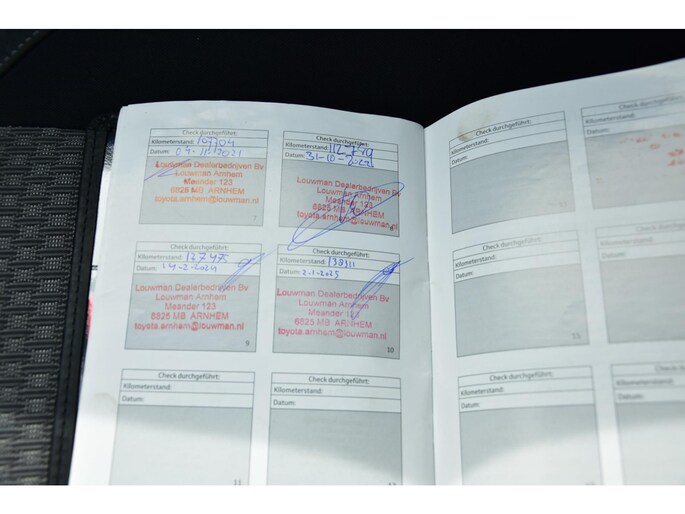 Check durchgeführt:
Kilometerstand: 104304
Datum: 04-11-2021
Louwman Dealerbedrijven Bv
Louwman Arnhem
Meander 123
6825 MB ARNHEM
toyota.arnhem@louwman.nl
7
Check durchgeführt:
Kilometerstand:
Datum: 31-10-2022
Louwman Dealerbedrijven Bv
Louwman Arnhem
Meander 123
6825 MB ARNHEM
toyota.arnhem@louwman.nl
Check durchgeführt:
Kilometerstand: 127475
Datum: 14-2-2024
Louwman Dealerbedrijven Bv
Louwman Arnhem
Meander 123
6825 MB ARNHEM
toyota.arnhem@louwman.nl
9
Check durchgeführt:
Kilometerstand: 138311
Datum: 2-1-2025
Louwman Dealerbedrijven Bv
Louwman Arnhem
Meander 123
6825 MB ARNHEM
toyota.arnhem@louwman.nl
10
Check durchgeführt:
Kilometerstand:
Datum:
11
Check durchgeführt:
Kilometerstand:
Datum:
Check durchgeführt:
Kilometerstand:
Datum:
Check durchgeführt:
Kilometerstand:
Datum:
Check durchgeführt:
Kilometerstand:
Datum:
Check durchgeführt:
Kilometerstand:
Datum:
15
Check durchgeführt:
Kilometerstand:
Datum:
Kilometerstand:
Datum: